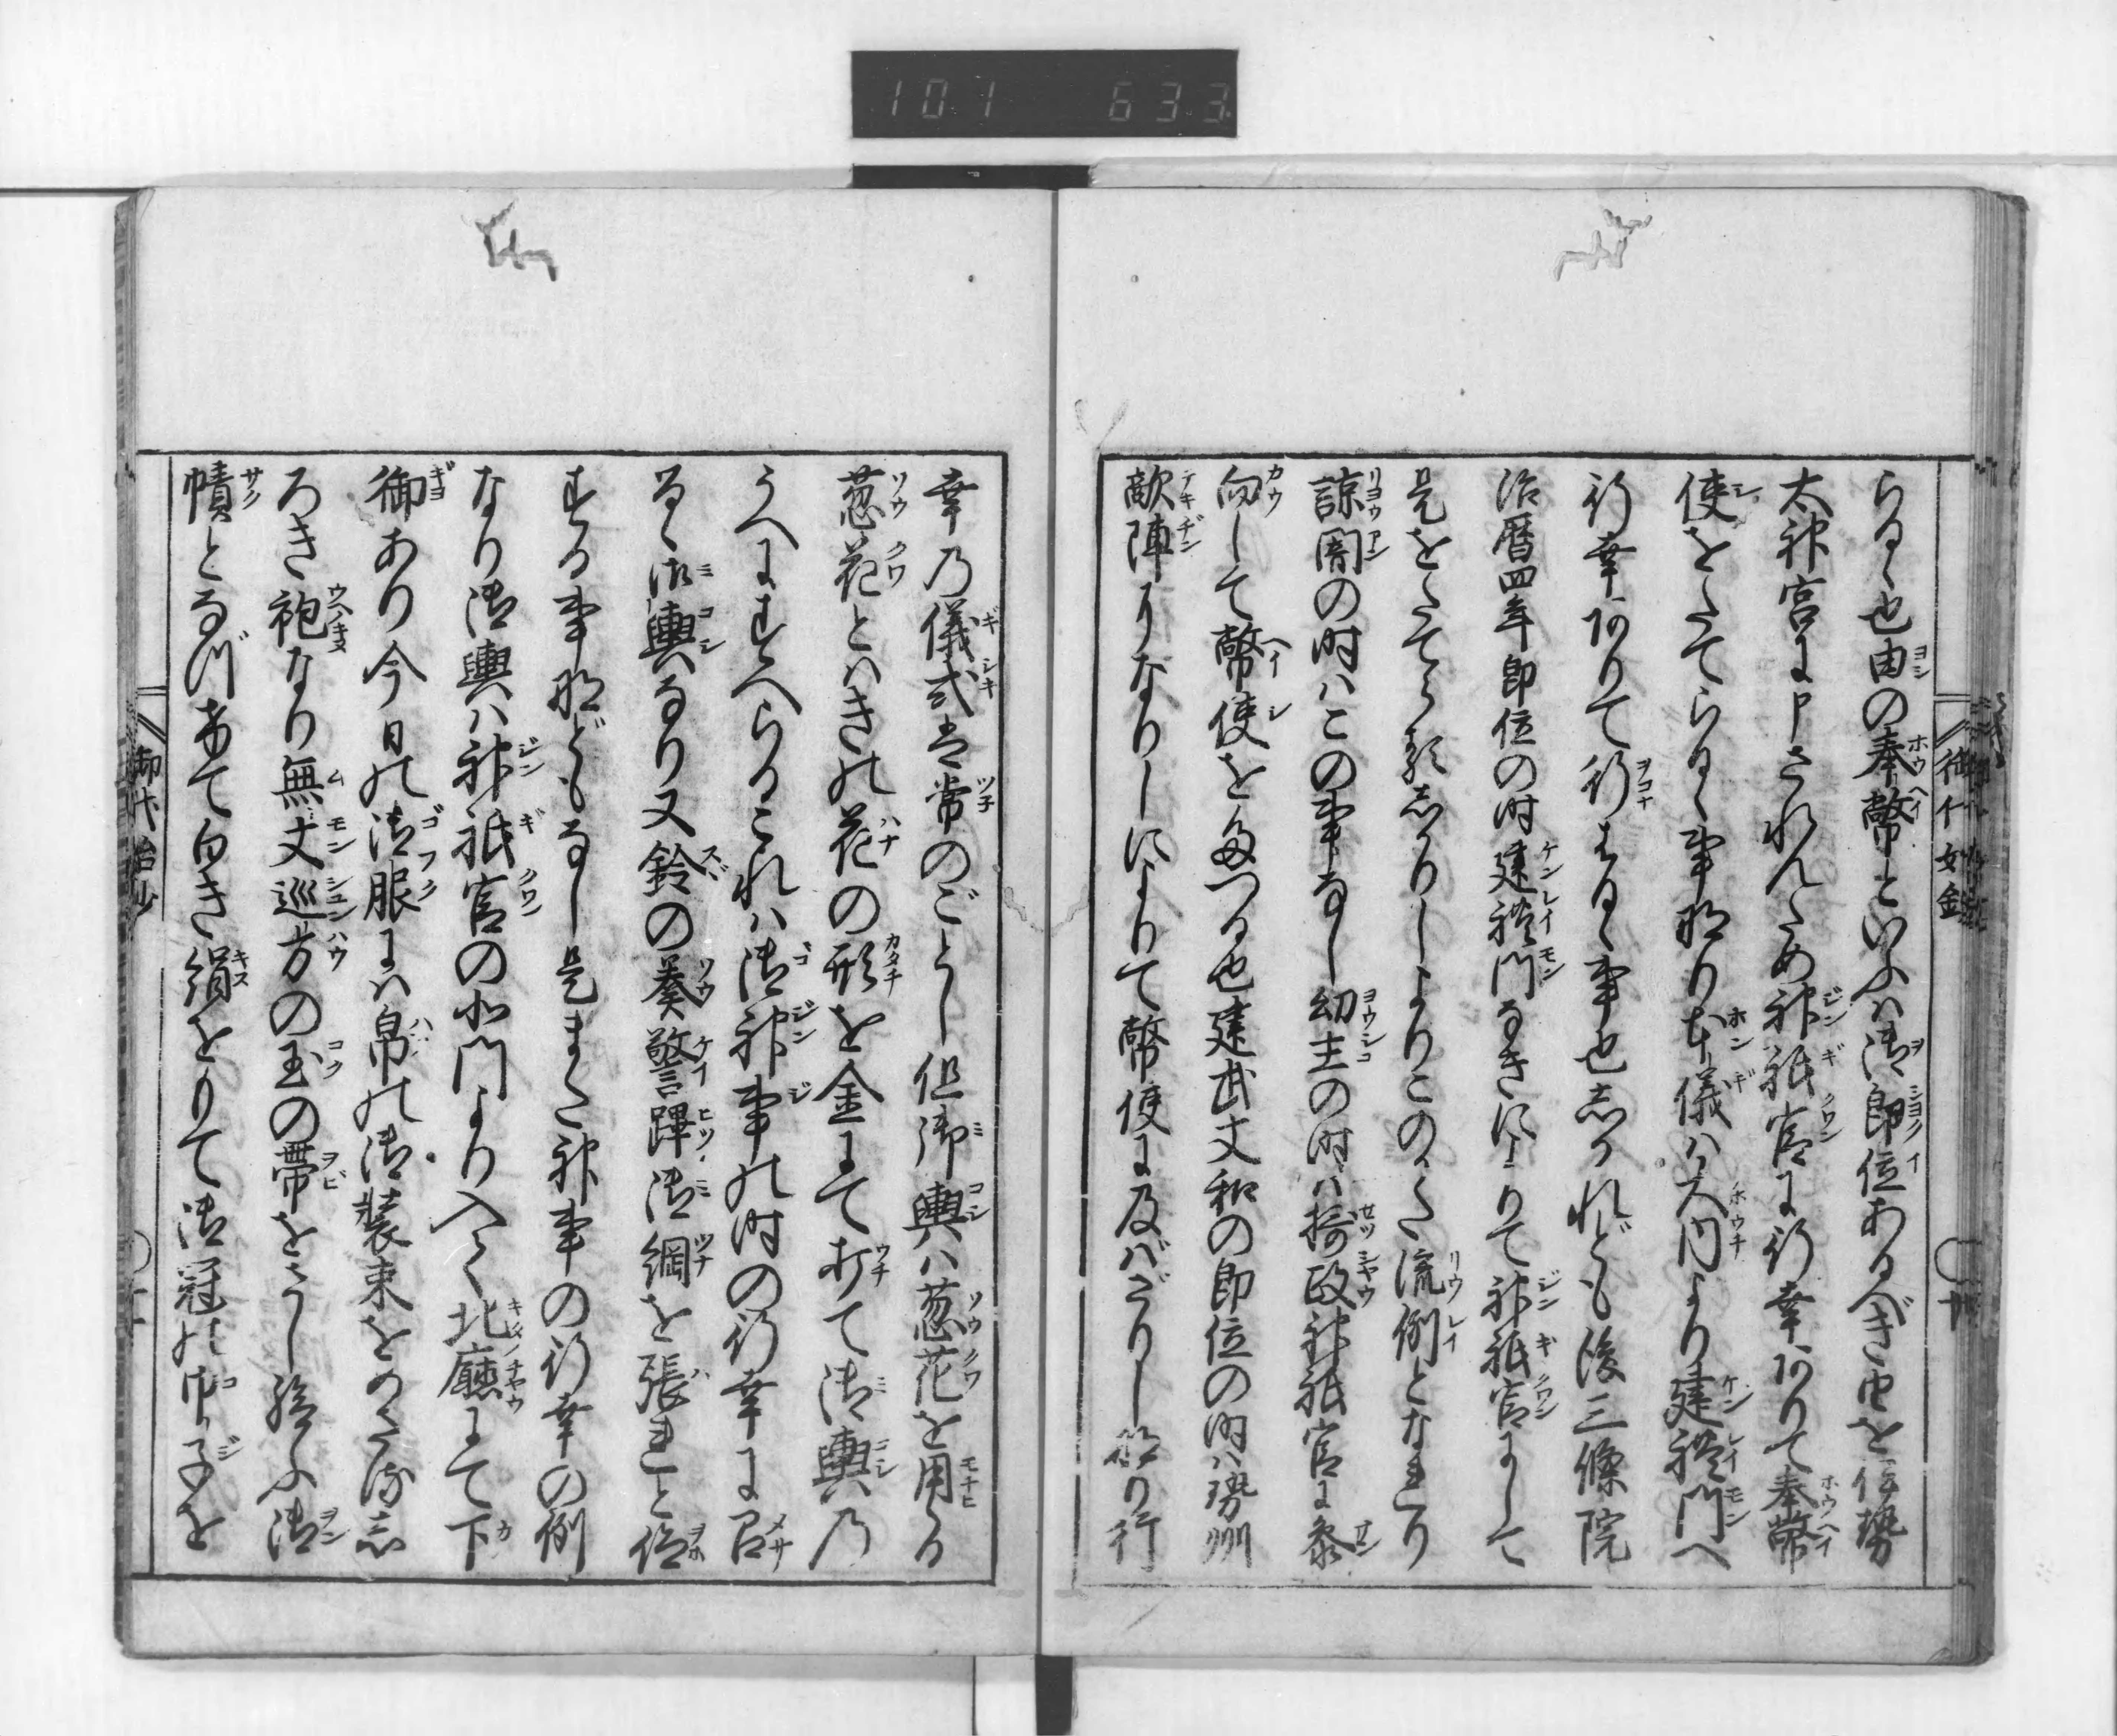 101 633
らるゝ也由の奉幣といふハ御即位あるべき由を伊勢
太神宮に申されんため神祇官に行幸ありて奉幣
使をたてらるゝ事なり本儀ハ大内より建禮門へ
行幸ありて行はるゝ事也しかれども後三條院
治暦四年即位の時建禮門なきによりて神祇官にして
是をたてら
諒闇の時ハこの事なし幼主の時ハ摂政神祇官に参
向して幣使をたつる也建武文和の即位の時ハ勢州
敵陣たりなりしによりて幣使に及バざりしなり行
幸乃儀式は常のごとし但御輿ハ葱花を用る
葱花とハきの花の形を金にて打て御輿乃
うへにすへらるこれハ御神事の時の行幸に召
るゝ御輿なり又鈴の奏警蹕御綱を張れと仰
する事などもなし是また神事の行幸の例
なり御輿ハ神祇官の北門より入て北廳にて下
御あり今日の御服にハ帛の御装束をめさるし
ろき袍なり無文巡方の玉の帯をさし給ふ御
幘となづけて白き絹をもて御冠の巾子を